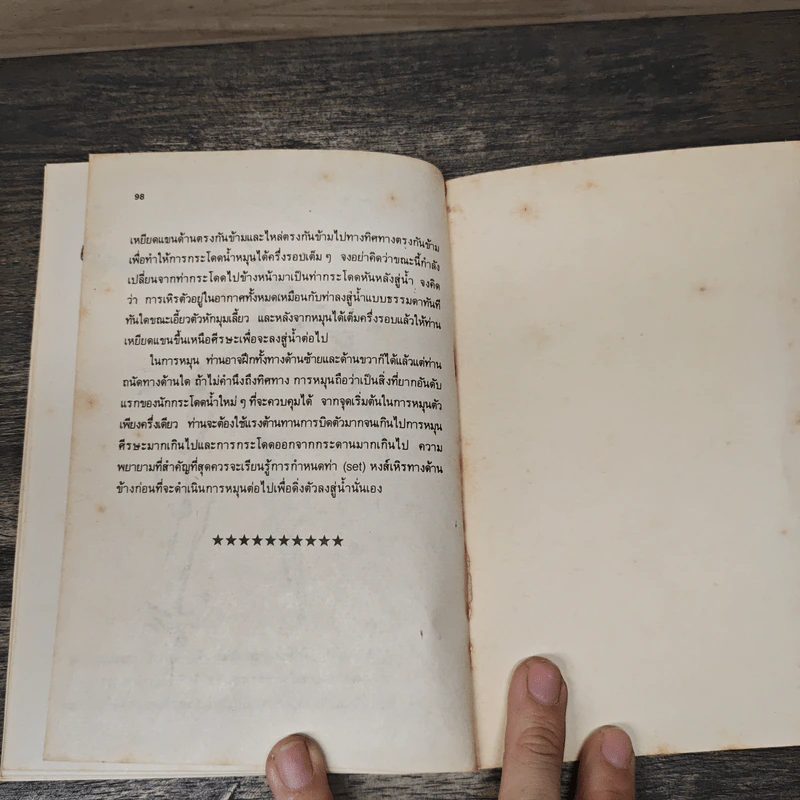 98
เหยียดแขนด้านตรงกันข้ามและไหล่ตรงกันข้ามไปทางทิศทางตรงกันข้าม
เพื่อทำให้การกระโดดน้ำหมุนได้ครึ่งรอบเต็ม ๆ จงอย่าคิดว่าขณะนี้กำลัง
เปลี่ยนจากท่ากระโดดไปข้างหน้ามาเป็นท่ากระโดดหันหลังสู่น้ำ จงคิด
ว่า การเหิรตัวอยู่ในอากาศทั้งหมดเหมือนกับท่าลงสู่น้ำแบบธรรมดาทันที
ทันใดขณะเอี้ยวตัวหักมุมเลี้ยว และหลังจากหมุนได้เต็มครึ่งรอบแล้วให้ท่าน
เหยียดแขนขึ้นเหนือศีรษะเพื่อจะลงสู่น้ำต่อไป
ในการหมุน ท่านอาจฝึกทั้งทางด้านซ้ายและด้านขวาก็ได้แล้วแต่ท่าน
ถนัดทางด้านใด ถ้าไม่คำนึงถึงทิศทาง การหมุนถือว่าเป็นสิ่งที่ยากอันดับ
แรกของนักกระโดดน้ำใหม่ ๆ ที่จะควบคุมได้ จากจุดเริ่มต้นในการหมุนตัว
เพียงครึ่งเดียว ท่านจะต้องใช้แรงต้านทานการบิดตัวมากจนเกินไปการหมุน
ศีรษะมากเกินไปและการกระโดดออกจากกระดานมากเกินไป ความ
พยายามที่สำคัญที่สุดควรจะเรียนรู้การกำหนดท่า (set) หงส์เหิรทางด้าน
ข้างก่อนที่จะดำเนินการหมุนต่อไปเพื่อดิ่งตัวลงสู่น้ำนั่นเอง
★★★★★★★★★★